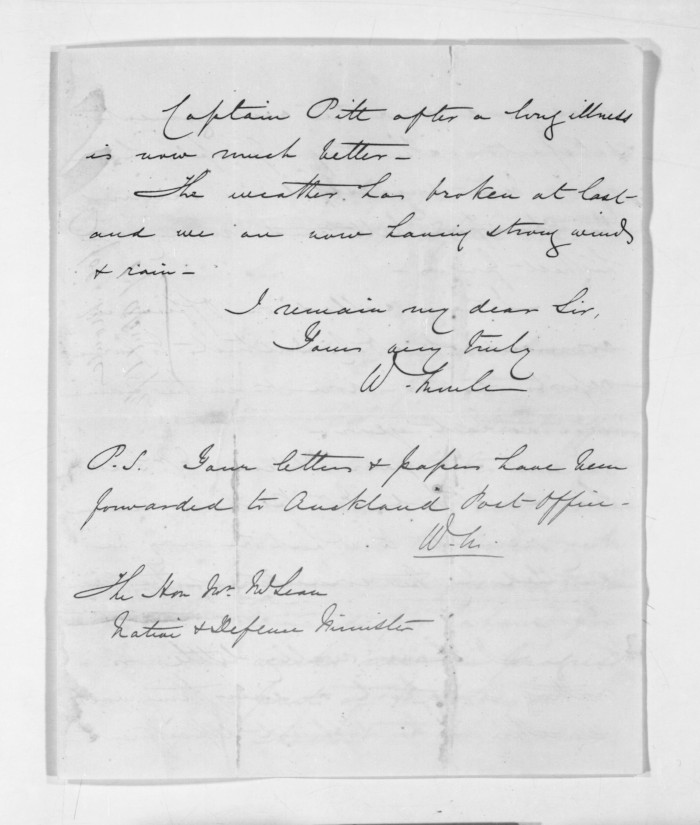 Captain Pitt after a long illness
is now much better -
The weather has broken at last -
and we are now having strong winds
& rain -
I remain my dear Sir,
Yours very truly
W. Moule
P.S. Your letters & papers have been
forwarded to Auckland Post Office -
W. M.
The Hon Mr. McLean
Native & Defence Minister